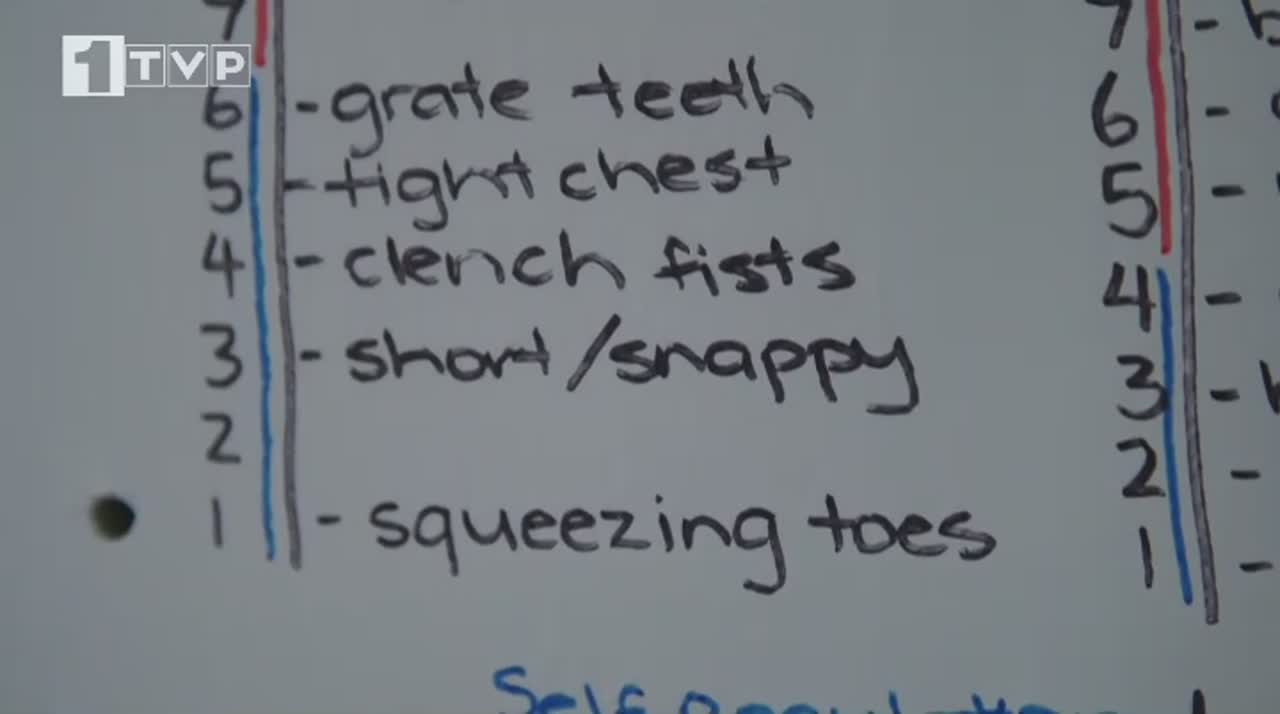 1 TVP
7
6 - grate teeth
5 - tight chest
4 - clench fists
3 - short/snappy
2
1 - squeezing toes
7 -
6 -
5 -
4 -
3 -
2 -
1 -
Self